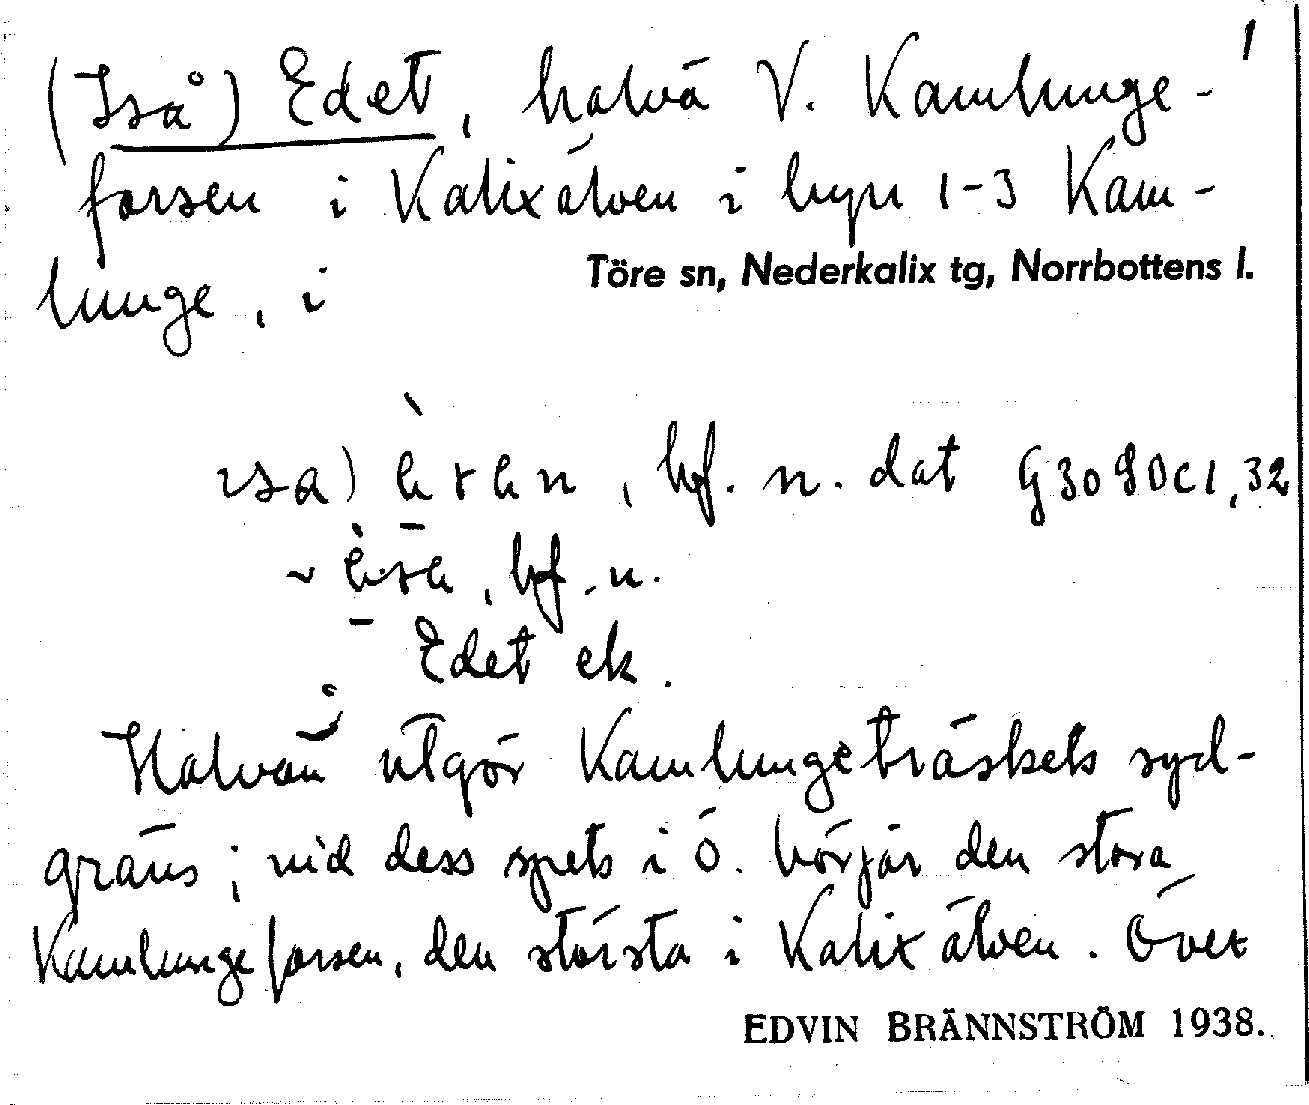 1
(Iså) Edet, halvö V. Kamlunge-
forsen i Kalixälven i byn 1-3 Kam-
lunge, i
Töre sn, Nederkalix tg, Norrbottens l.
bf. n. dat
~ bf. n.
Edet ek.
Halvön utgör Kamlungeträskets syd-
gräns; vid dess spets i Ö. börjar den stora
Kamlungeforsen, den största i Kalixälven. Över
EDVIN BRÄNNSTRÖM 1938.